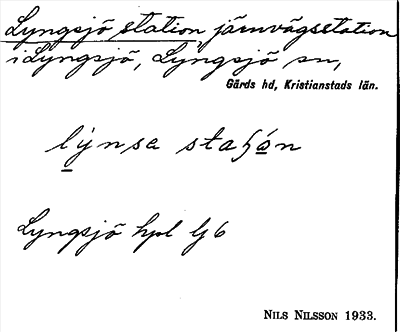 Lyngsjö station, järnvägsstation
i Lyngsjö, Lyngsjö sn,
Gärds hd, Kristianstads län.
lýnsa staɧón
Lyngsjö hpl Lj 6
NILS NILSSON 1933.